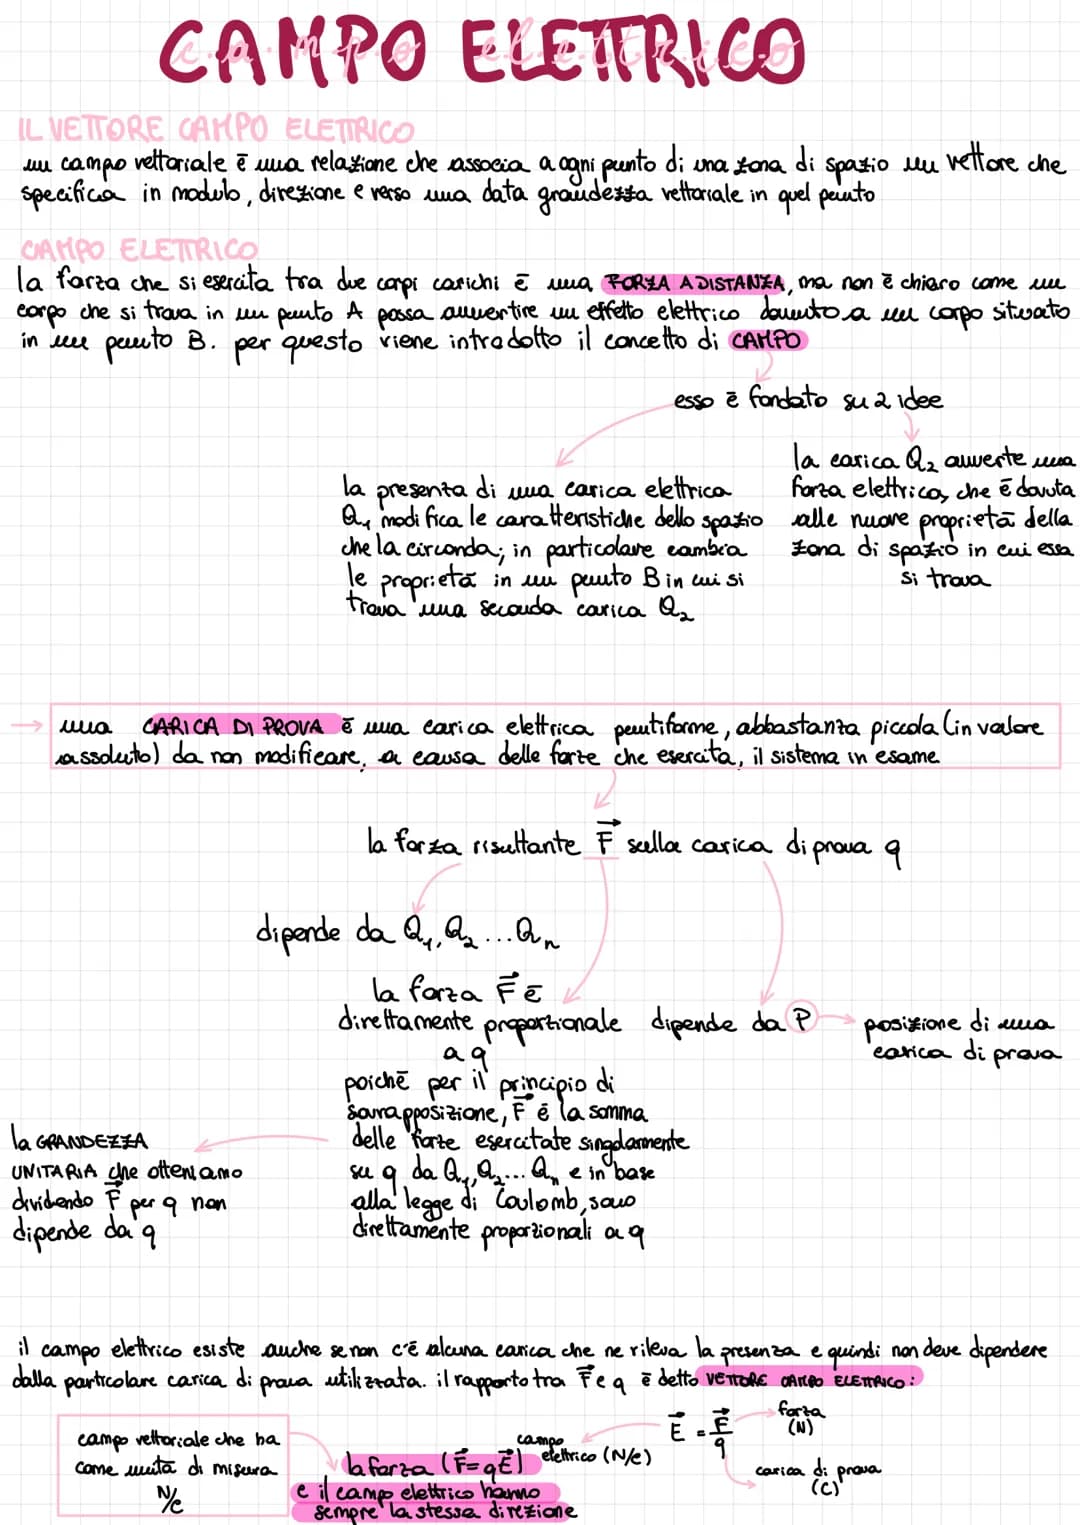 CAMPO ELETTRICO
campo elettrico
IL VETTORE CAMPO ELETTRICO
un campo vettoriale ē una relazione che associa a ogni punto di una zona di spazio un vettore che
specifica in modulo, direzione e verso una data grandezza vettoriale in quel punto
CAMPO ELETTRICO
la forza che si esercita tra due corpi carichi ē una FORZA A DISTANZA, ma non ē chiaro come un
corpo che si trova in un punto A possa avvertire un effetto elettrico dovuto a un corpo situato
in un punto B. per questo viene introdotto il concetto di CAMPO
esso ē fondato su 2 idee
la presenza di una carica elettrica
Q₁ modifica le caratteristiche dello spazio
che la circonda; in particolare cambia
le proprietā in un punto B in cui si
trova una seconda carica Q₂
la carica Q₂ avverte una
forza elettrica, che ē dovuta
alle nuove proprietā della
zona di spazio in cui essa
si trova
→ una CARICA DI PROVA ē una carica elettrica puntiforme, abbastanza piccola (in valore
assoluto) da non modificare, a causa delle forze che esercita, il sistema in esame
la forza risultante F⃗ sulla carica di prova q
dipende da Q₁, Q₂ ... Qₙ
la forza F⃗ ē
direttamente proporzionale
a q
poichē per il principio di
sovrapposizione, F⃗ ē la somma
delle forze esercitate singolarmente
su q da Q₁, Q₂... Qₙ e in base
alla legge di Coulomb, sono
direttamente proporzionali a q
dipende da P → posizione di una
carica di prova
la GRANDEZZA
UNITARIA che otteniamo
dividendo F⃗ per q non
dipende da q
il campo elettrico esiste anche se non c'ē alcuna carica che ne rileva la presenza e quindi non deve dipendere
dalla particolare carica di prova utilizzata. il rapporto tra F⃗ e q ē detto VETTORE CAMPO ELETTRICO:
E⃗ = F⃗/q
forza
(N)
carica di prova
(C)
campo
elettrico (N/c)
campo vettoriale che ha
come unitā di misura
N/c
la forza (F⃗=qE⃗)
e il campo elettrico hanno
sempre la stessa direzione